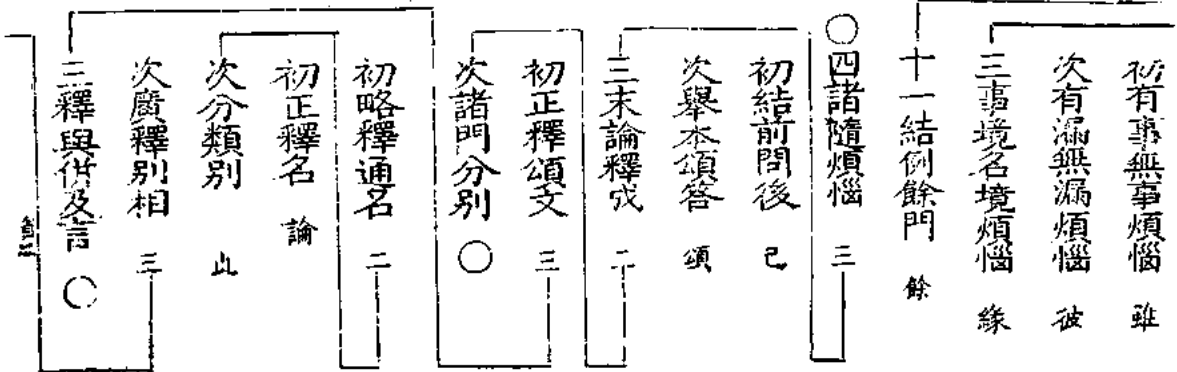 初有事無事煩惱 雖
次有漏無漏煩惱 彼
三事境名境煩惱 緣
十一結例餘門 餘
○四諸隨煩惱 三
初結前問後 已
次舉本頌答 頌
三末論釋成 二
初正釋頌文 三
次諸門分別 ○
初略釋通名 二
初正釋名 論
次分類別 此
次廣釋別相 三
三釋與併及言 ○